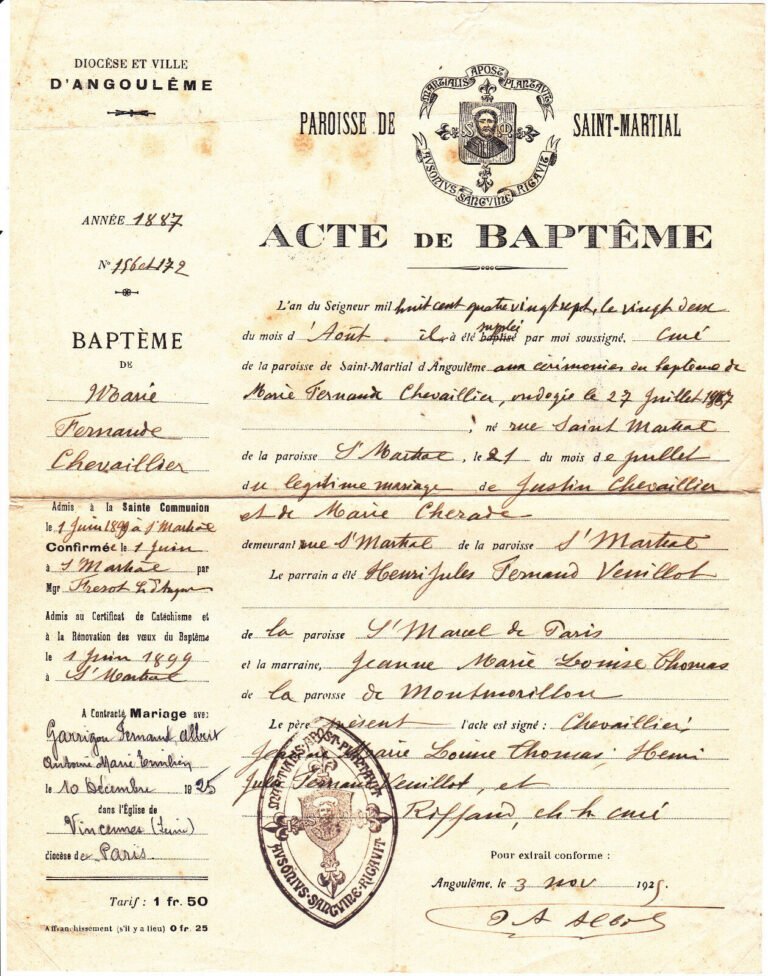 DIOCÈSE ET VILLE
D'ANGOULÊME
MARTIALIS APOST PLANTAVIT
PAROISSE DE SAINT-MARTIAL
AVSONIVS SANGVINE RIGAVIT
ANNÉE 1887
ACTE DE BAPTÊME
N° 156 et 172
BAPTÈME
DE
Marie
Fernande
Chevaillier
Admis à la Sainte Communion
le 1 Juin 1899 à St Martial
Confirmée le 1 Juin
à St Martial par
Mgr
Admis au Certificat de Catéchisme et
à la Rénovation des vœux du Baptême
le 1 Juin 1899
à St Martial
A Contracté Mariage avec
Garrigou Fernand Albert
Antoine Marie Emilien
le 10 Décembre 1925
dans l'Église de
Vincennes (Seine)
diocèse de Paris
Tarif : 1 fr. 50
Affranchissement (s'il y a lieu) 0 fr. 25
L'an du Seigneur mil huit cent quatre vingt sept, le vingt deux
du mois d'Août. il a été baptisé suppléé par moi soussigné, curé
de la paroisse de Saint-Martial d'Angoulême aux cérémonies du baptême de
Marie Fernande Chevaillier, ondoyée le 27 Juillet 1887
; né rue Saint Martial
de la paroisse St Martial, le 21 du mois de juillet
du légitime mariage de Justin Chevaillier
et de Marie Cherade
demeurant rue St Martial de la paroisse St Martial
Le parrain a été Henri Jules Fernand Veuillot
de la paroisse St Marcel de Paris
et la marraine, Jeanne Marie Louise Thomas
de la paroisse de Montmorillon
Le père présent l'acte est signé : Chevaillier,
Jeanne Marie Louise Thomas, Henri
Jules Fernand Veuillot, et
Riffaud, ch. h. curé
MARTIALIS·APOST·PLANTAVIT
AVSONIVS·SANGVINE·RIGAVIT
Pour extrait conforme :
Angoulême, le 3 nov 1925.